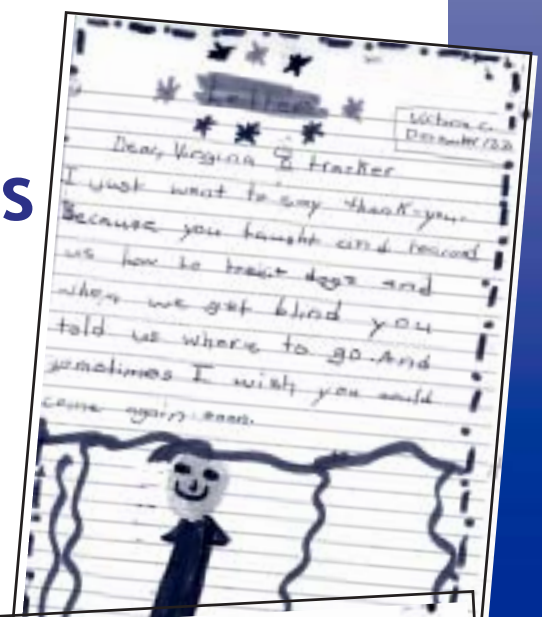 s
Letter
Victoria C.
Dear, Virgina & tracker
I just want to say thank-you.
Because you taught and
us how to treat dogs and
when we get blind you
told us where to go. And
sometimes I wish you would
come again soon.